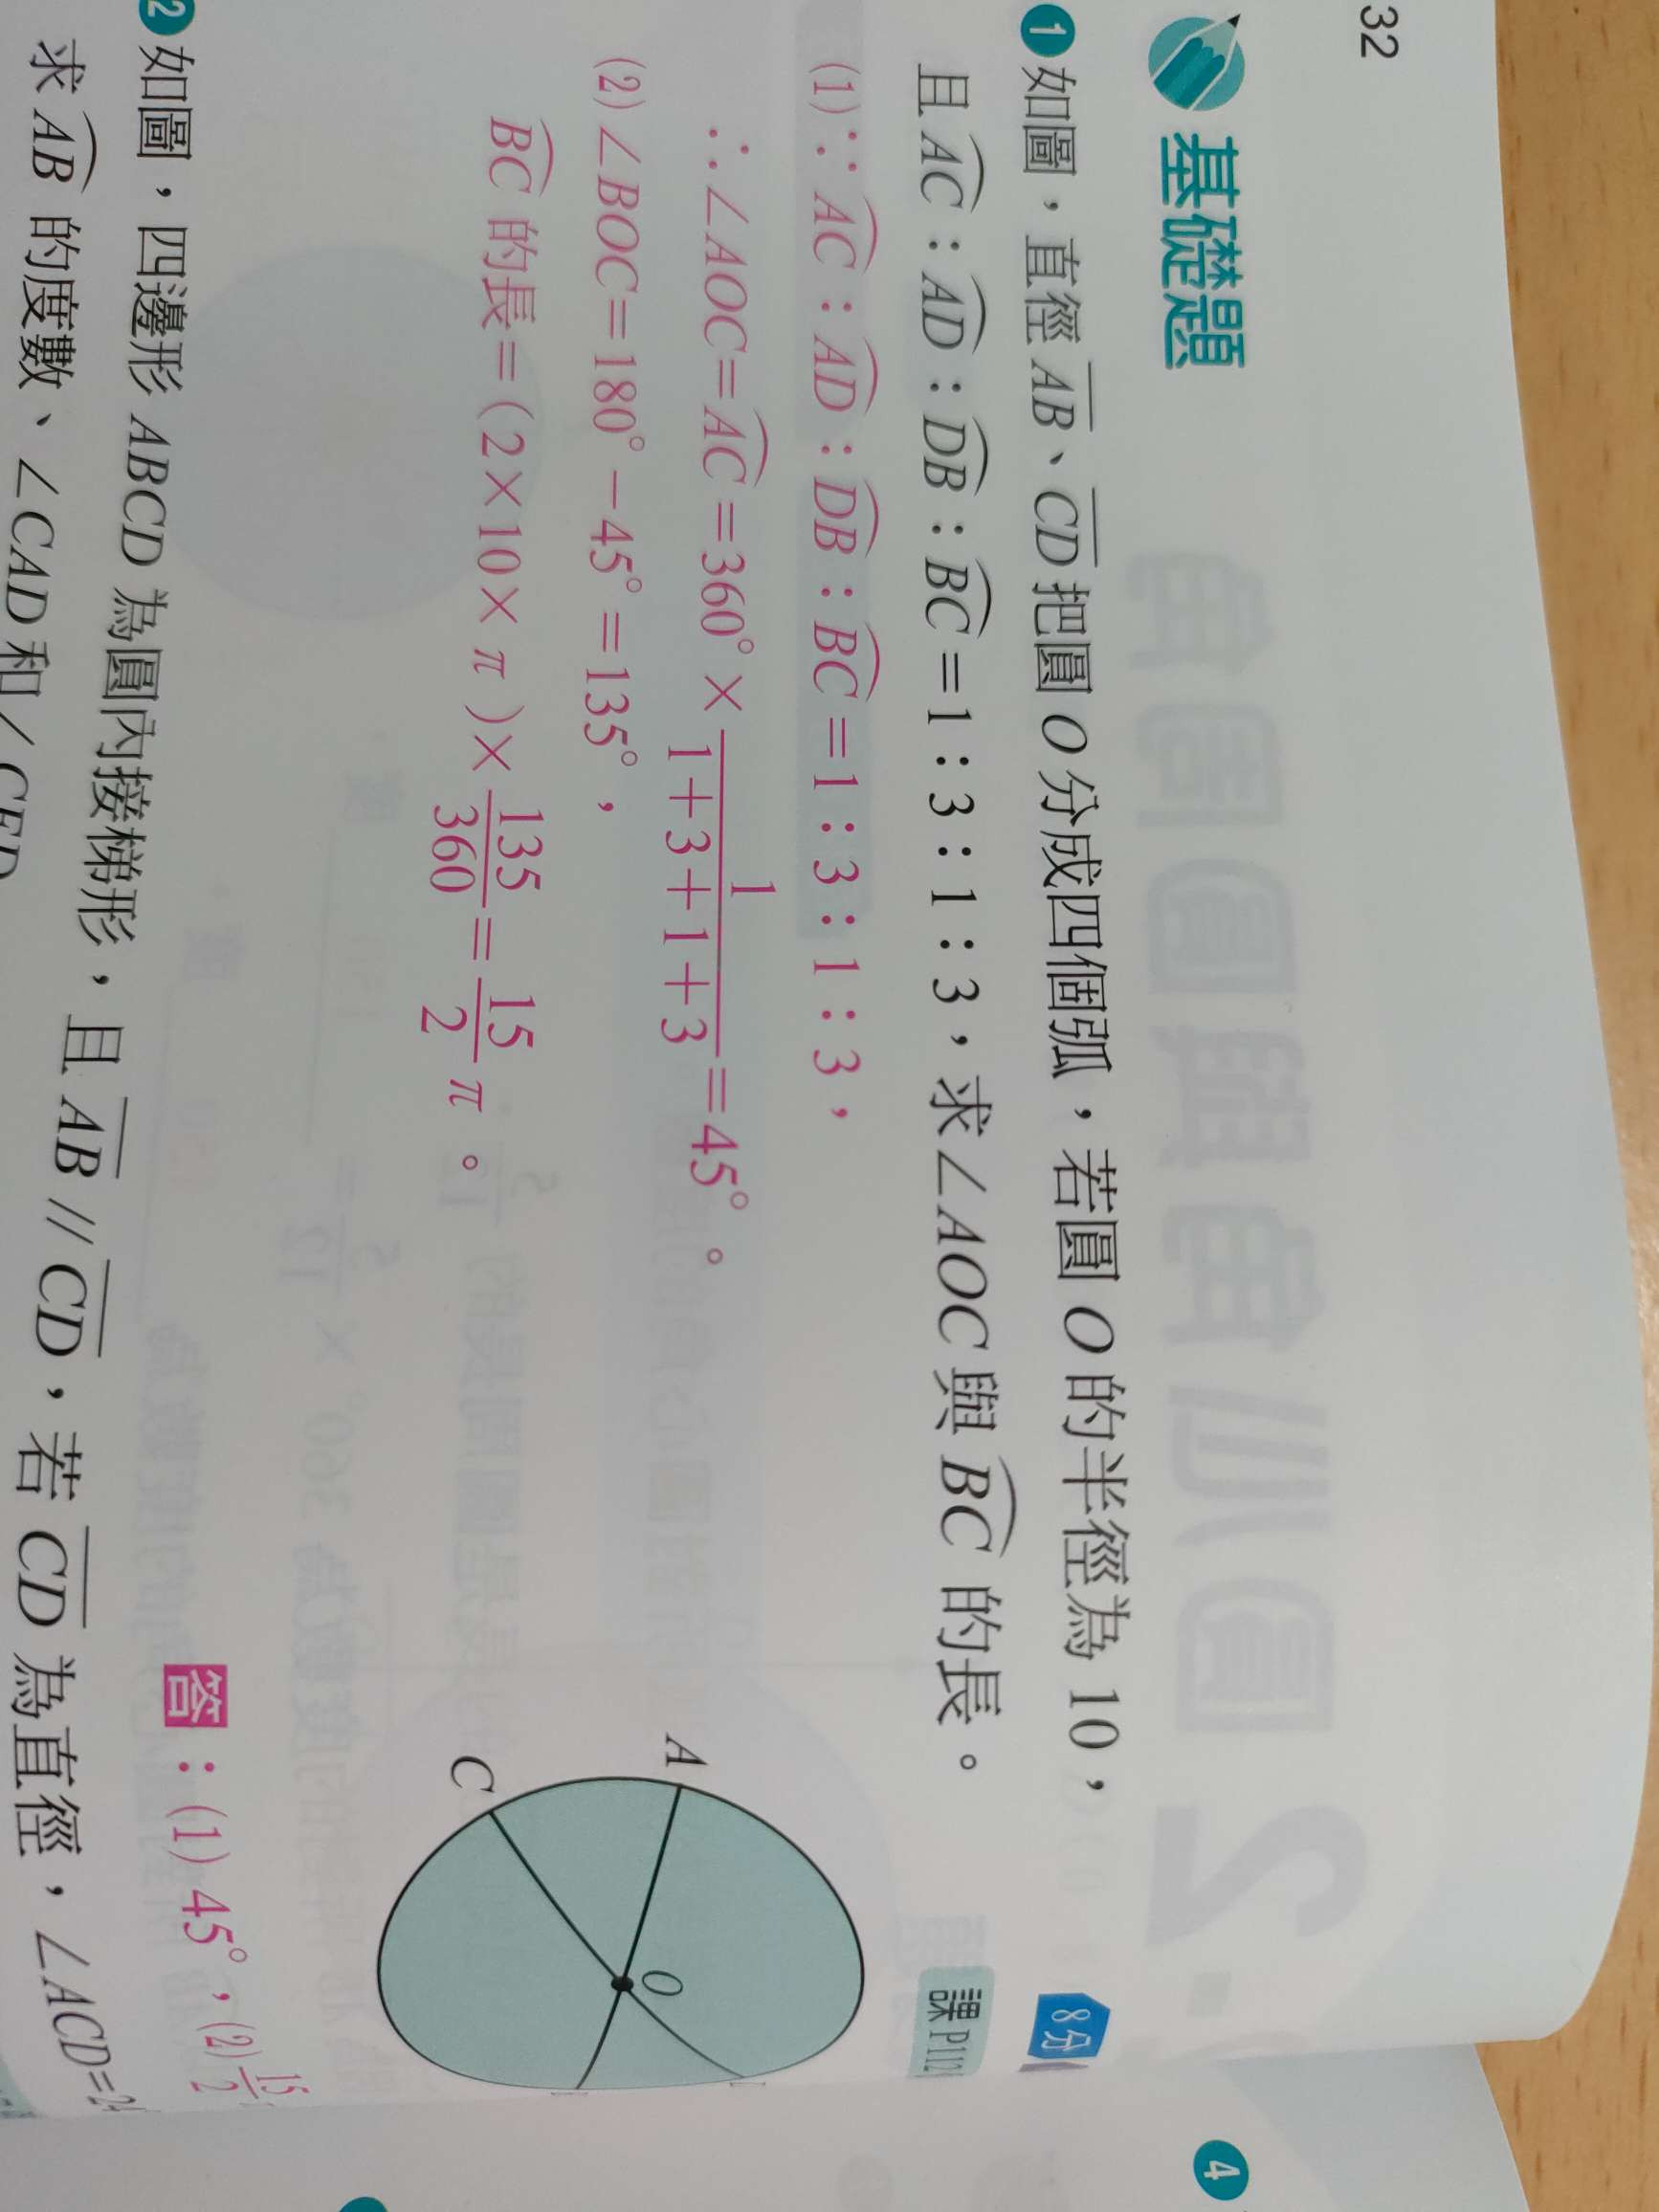 32
基礎題
8分
1 如圖，直徑 AB、CD 把圓 O 分成四個弧，若圓 O 的半徑為 10，
且 AC：AD：DB：BC＝1：3：1：3，求∠AOC 與 BC 的長。
課P112
(1)∵AC：AD：DB：BC＝1：3：1：3，
∴∠AOC＝AC＝360°×1/(1＋3＋1＋3)＝45°。
(2)∠BOC＝180°－45°＝135°，
BC 的長＝(2×10×π)×135/360＝15/2 π。
A
C
O
答：(1) 45°，(2) 15/2
2 如圖，四邊形 ABCD 為圓內接梯形，且 AB // CD，若 CD 為直徑，∠ACD=24
求 AB 的度數、∠CAD 和∠CED
4